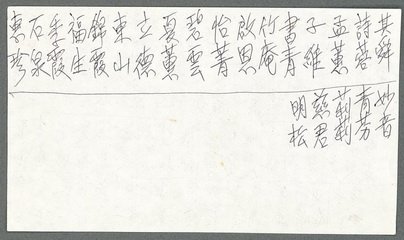 其舜
詩蓉
孟蕙
子維
書青
竹庵
啟恩
怡菁
碧雲
夏薰
立德
東山
錦霞
福生
季霞
石泉
惠珍
妙音
青芳
莉莉
慈君
明松